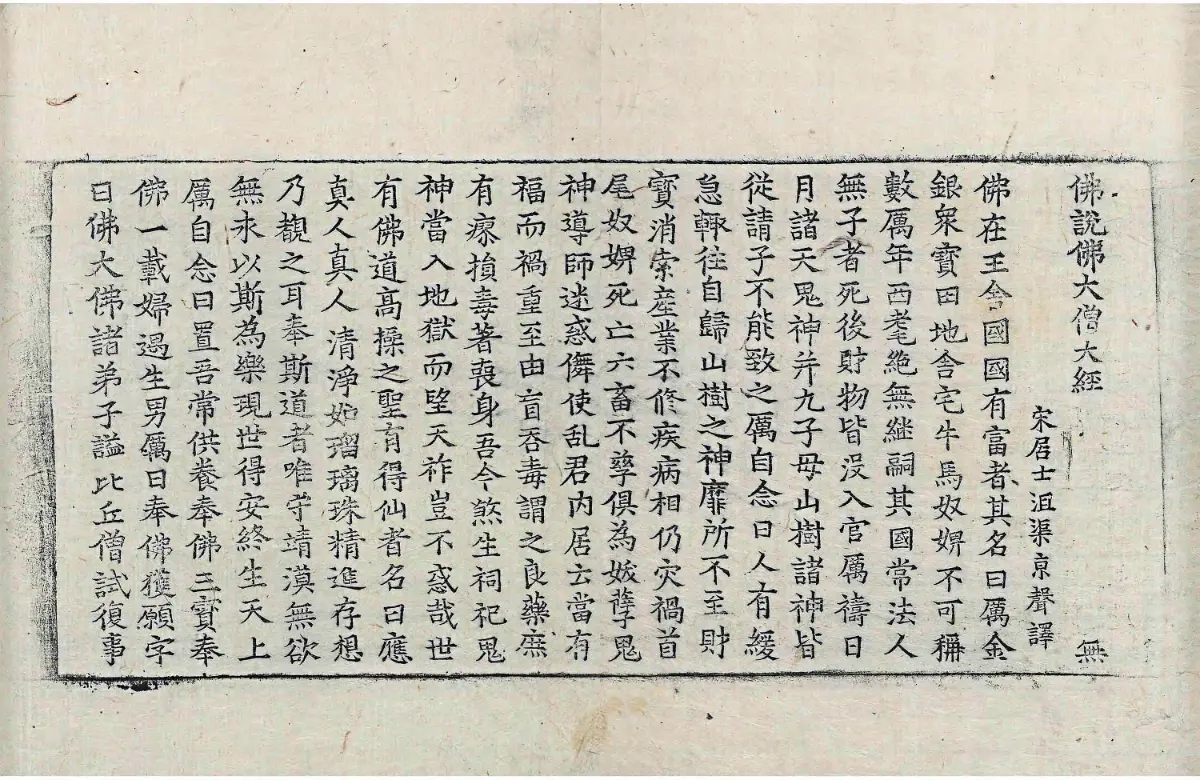 佛說佛大僧大經 無
宋居士沮渠京聲譯
佛在王舍國國有富者其名曰厲金
銀衆寶田地舍宅牛馬奴婢不可稱
數厲年西耄絶無継嗣其國常法人
無子者死後財物皆没入官厲禱日
月諸天鬼神并九子母山樹諸神皆
從請子不能致之厲自念曰人有緩
急輙往自歸山樹之神靡所不至財
寶消索產業不修疾病相仍灾禍首
尾奴婢死亡六畜不孳俱為妭孽鬼
神導師迷惑儛使乱君内居云當有
福而禍重至由盲吞毒謂之良藥庶
有瘳損毒著喪身吾今煞生祠祀鬼
神當入地獄而望天祚豈不惑哉世
有佛道高操之聖有得仙者名曰應
真人真人清淨如瑠璃珠精進存想
乃覩之耳奉斯道者唯守靖漠無欲
無求以斯為樂現世得安終生天上
厲自念曰置吾常供養奉佛三寶奉
佛一載婦遇生男厲曰奉佛獲願字
曰佛大佛諸弟子謚比丘僧試復事